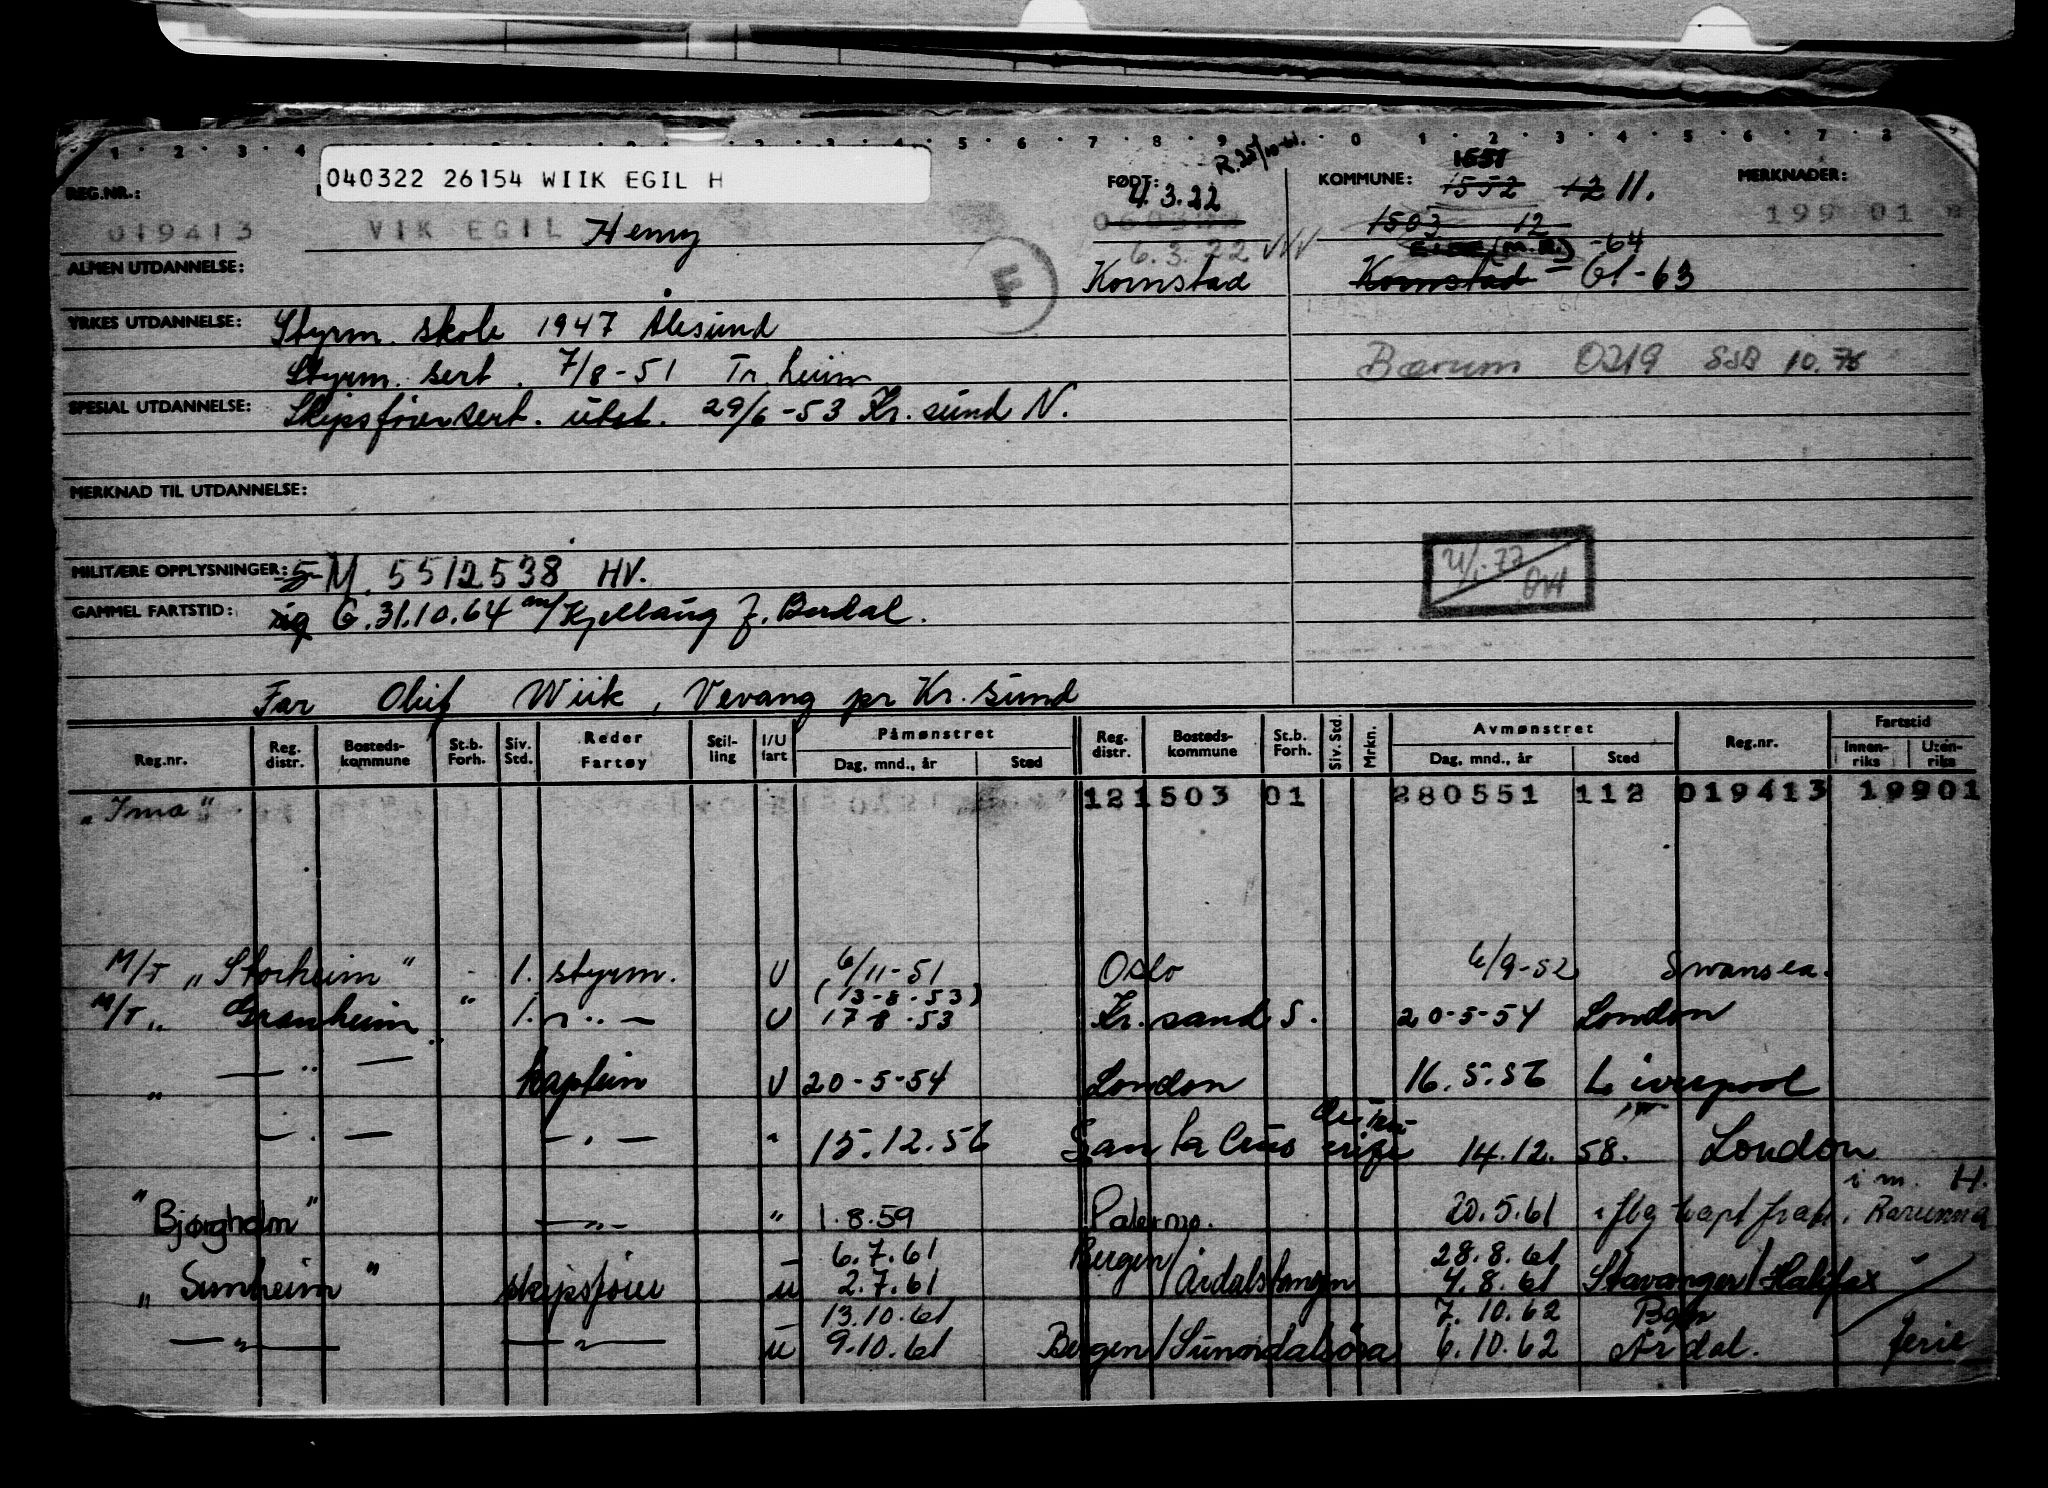 1 2 3 4 5 6 7 8 9 0 1 2 3 4 5 6 7 8
R. 25/10-61.
040322 26154 WIIK EGIL H
REG.NR.: FØDT: 4.3.22 KOMMUNE: 1551 1552 12 11. MERKNADER:
019413 VIK EGIL Henry 1503 12 199 01
6.3.22 -64
ALMEN UTDANNELSE: E Kornstad Kornstad - 61-63
YRKES UTDANNELSE: Styrm. skole 1947 Ålesund
Styrm. sert. 7/8-51 Tr.heim Bærum 0219 SSB 10.76
SPESIAL UTDANNELSE: Skipsførersert. utst. 29/6-53 Kr.sund N.
MERKNAD TIL UTDANNELSE:
MILITÆRE OPPLYSNINGER: M. 5512538 HV.
GAMMEL FARTSTID: G. 31.10.64
Far Oluf Wiik, Vevang pr Kr.sund
Reg.nr. Reg. distr. Bosteds-kommune St.b. Forh. Siv. Std. Reder Fartøy Stil-ling I/U fart Påmønstret Dag, mnd., år Sted Reg. distr. Bosteds-kommune St.b. Forh. Siv. Std. Mrkn. Avmønstret Dag, mnd., år Sted Reg.nr. Fartstid Innen-riks Uten-riks
"Ima" 121503 01 280551 112 019413 19901
M/T "Storheim" 1. styrm. U 6/11-51 Oslo 6/9-52 Swansea.
(13-8-53)
M/T " Granheim " 1. - " - U 17-8-53 Kr.sand S. 20-5-54 London
" - " - kaptein U 20-5-54 London 16.5.56 Liverpool
- " - - " - " 15.12.56 Santa Cruz 14.12.58. London
i m. H.
"Bjørgholm" - " - " 1.8.59 Palermo. 20.5.61 Ravenna
6.7.61 Bergen/ 28.8.61
" Sunheim " skipsfører u 2.7.61 Årdalstangen 4.8.61 Stavanger/Halifax
13.10.61 7.10.62
- " - - " - u 9.10.61 Bergen/Sunndalsøra 6.10.62 Årdal. ferie